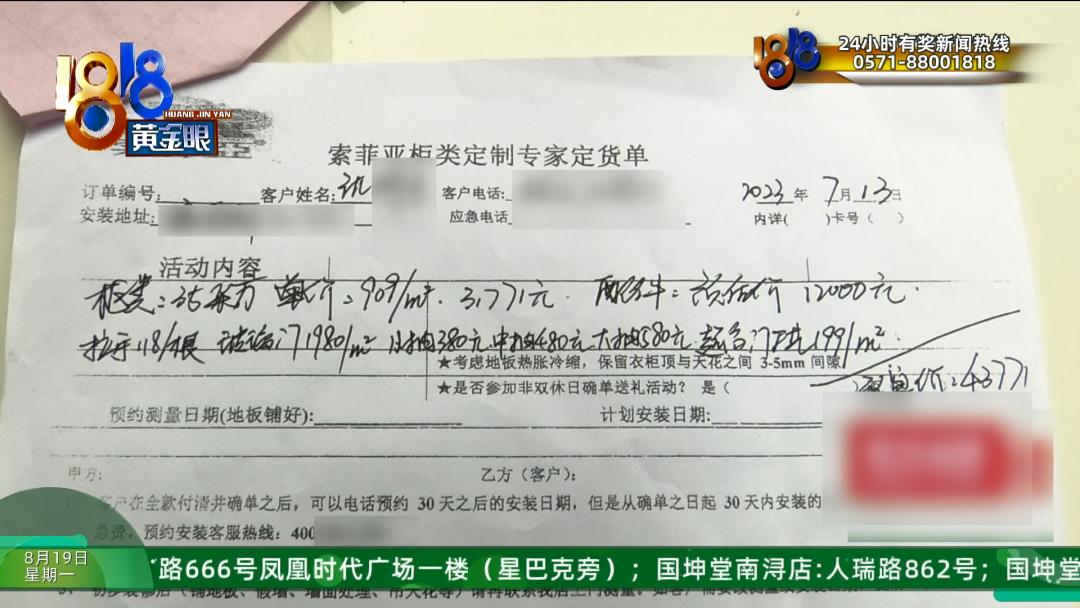 1818
HUANG JIN YAN
黄金眼
1818
24小时有奖新闻热线
0571-88001818
索菲亚柜类定制专家定货单
订单编号: 客户姓名: 客户电话: 2023年7月13日
安装地址: 应急电话 内详( )卡号( )
活动内容
柜类: 单价: 909/m² 31771元. 配件: 预估价 12000元.
拉手118/根 玻璃门1980/m² 小抽380元 中抽480元 大抽580元 199/m²
★考虑地板热胀冷缩，保留衣柜顶与天花之间 3-5mm 间隙
★是否参加非双休日确单送礼活动？ 是（
价:43771
预约测量日期(地板铺好): 计划安装日期:
甲方: 乙方（客户）:
客户在全款付清并确单之后，可以电话预约 30天之后的安装日期，但是从确单之日起 30天内安装的
急费，预约安装客服热线: 400
8月19日
星期一
路666号凤凰时代广场一楼（星巴克旁）；国坤堂南浔店:人瑞路862号；国坤